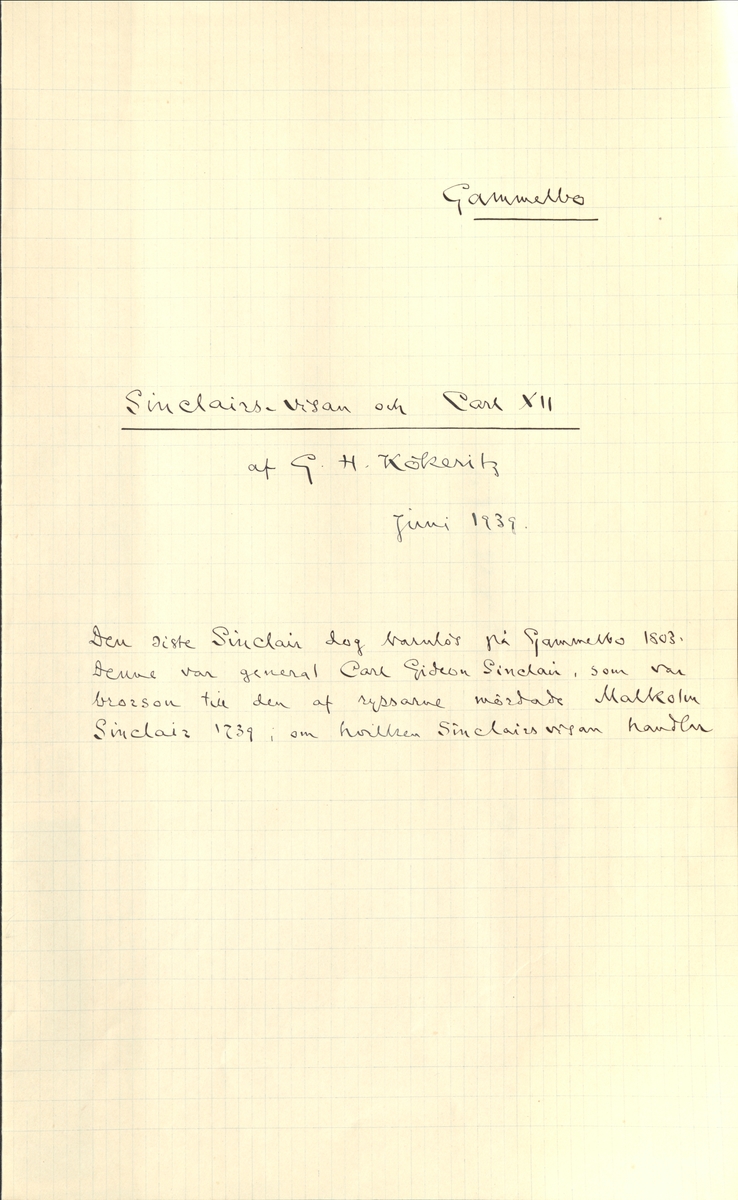 Gammelbo
Sinclairs-visan och Carl XII
af G. H. Kökeritz
Juni 1939.
Den siste Sinclair dog barnlös på Gammelbo 1803.
Denne var general Carl Gideon Sinclair, som var
brorson till den af ryssarne mördade Malkolm
Sinclair 1739, om hvilken Sinclairsvisan handlar